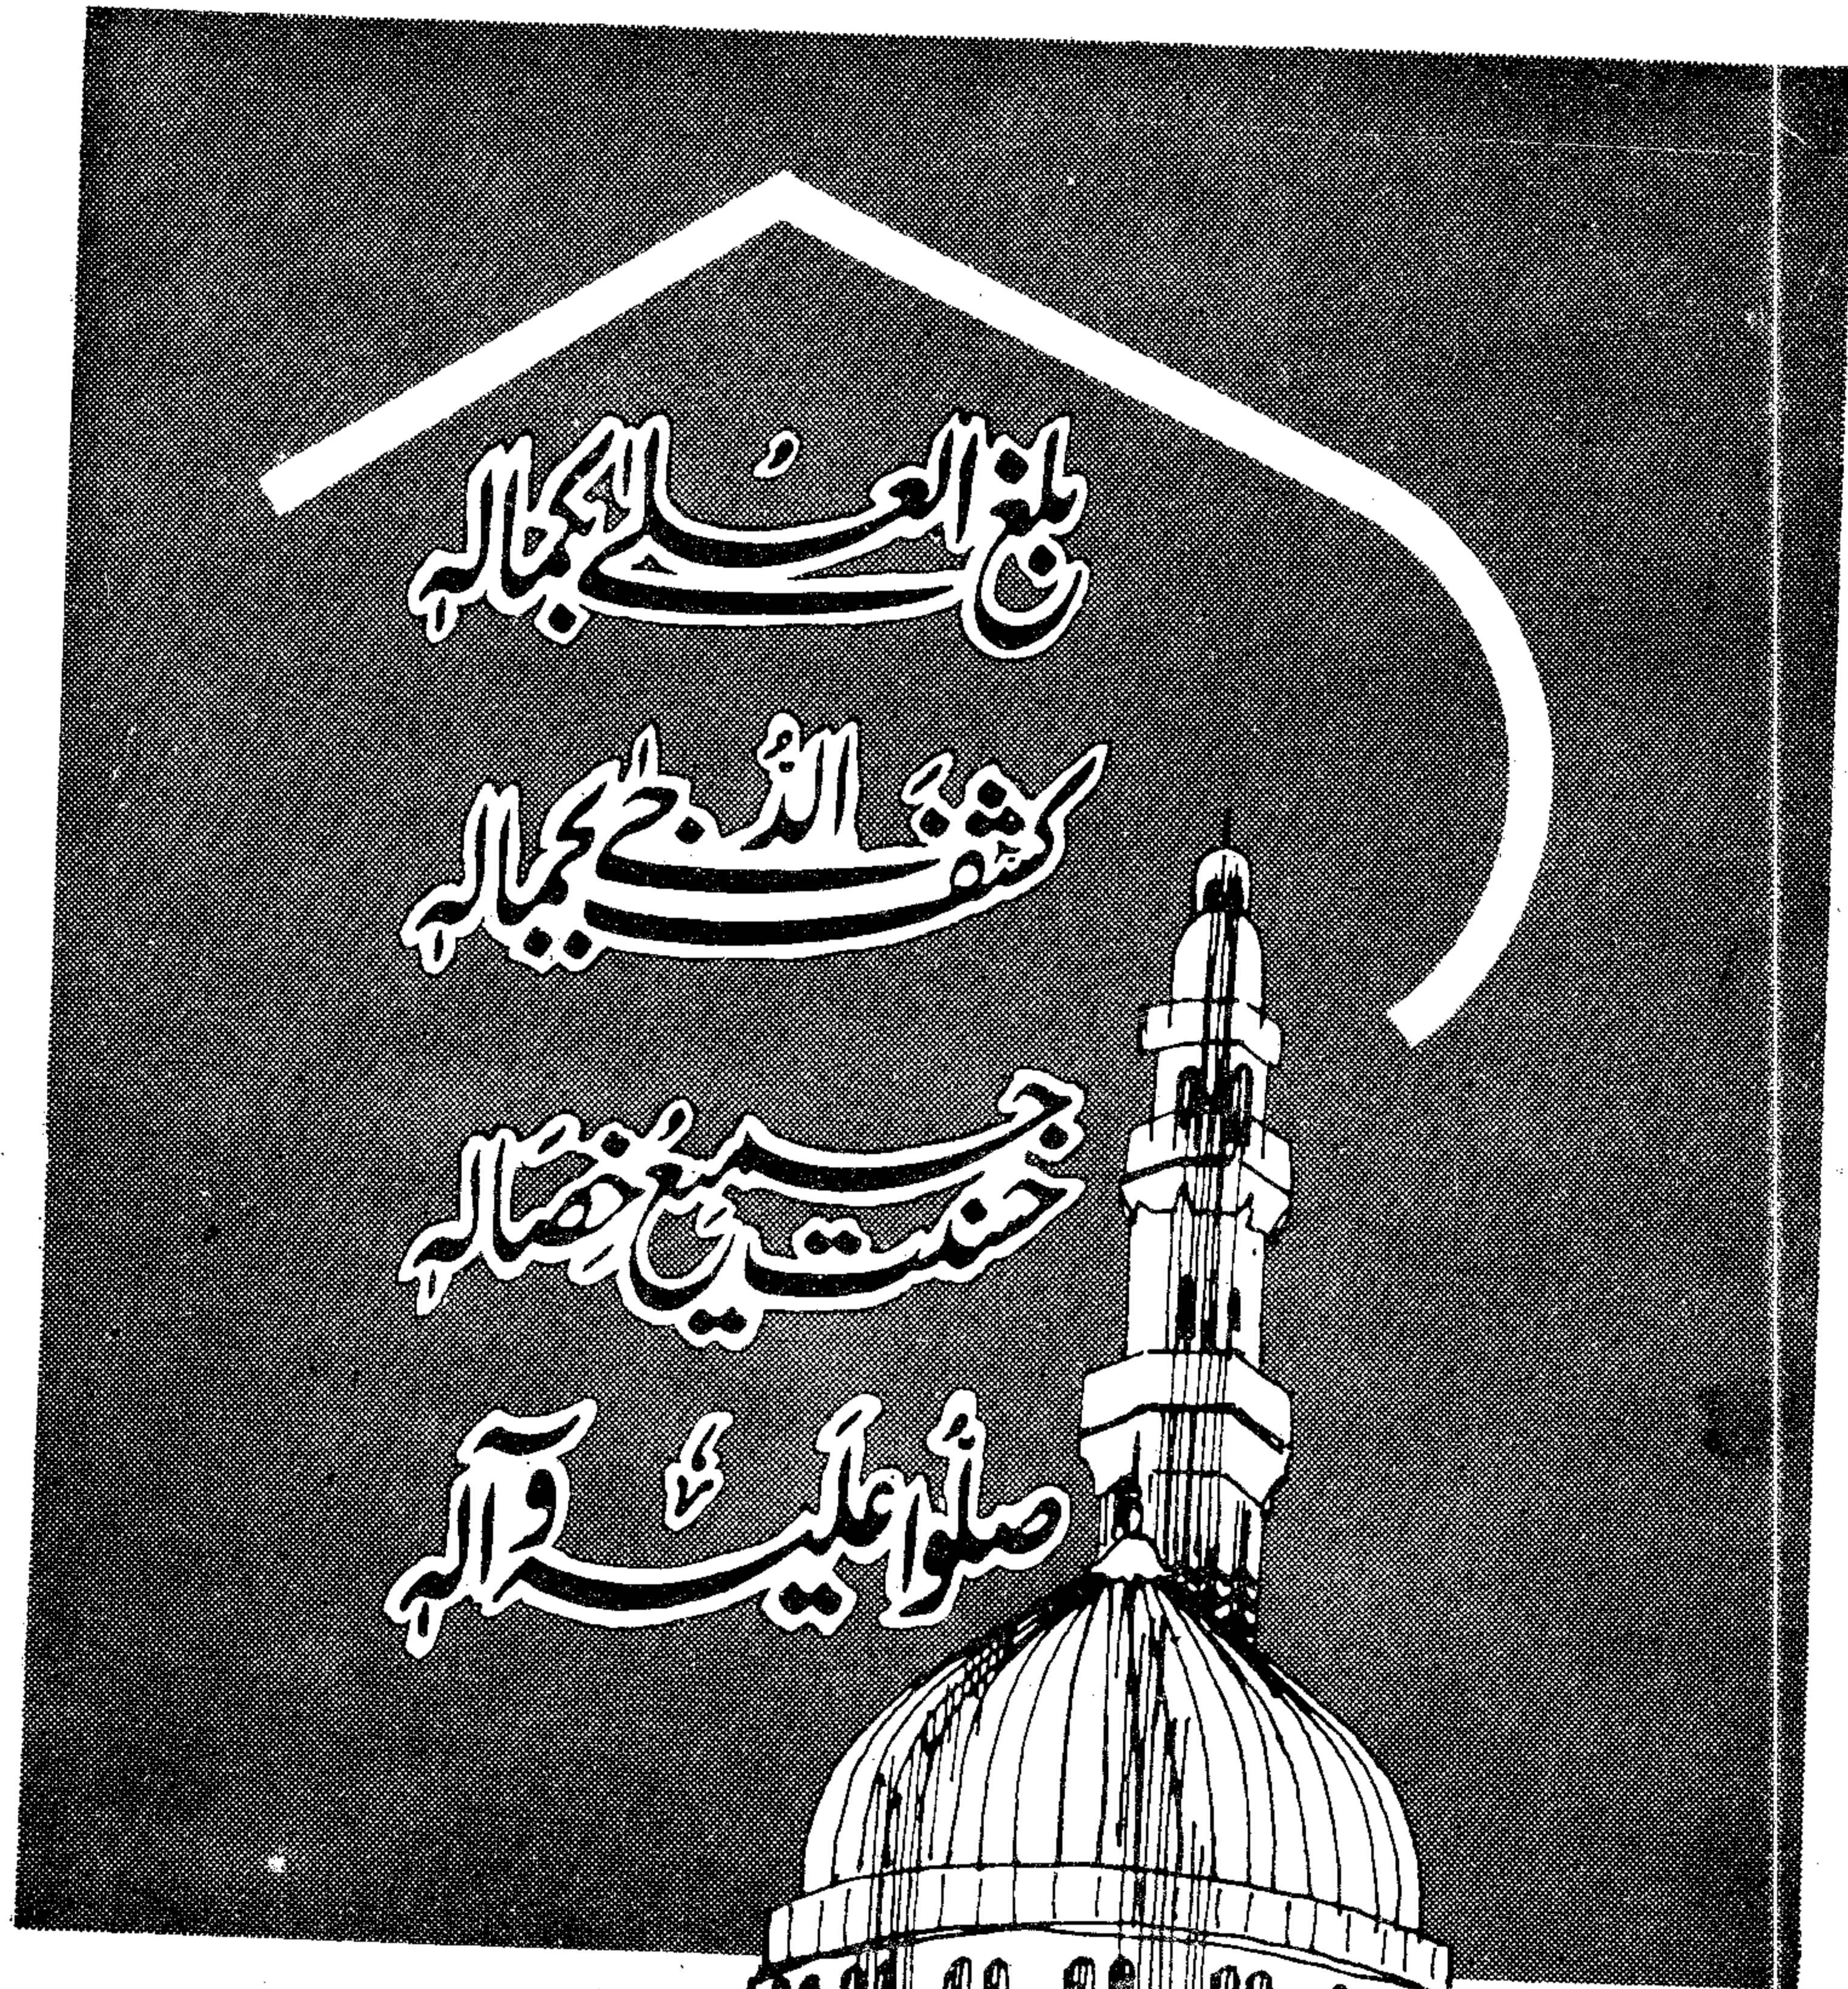 بلغ العُلےٰ بکمالہٖ
کشفَ الدُّجےٰ بجمالہٖ
حسنت جمیعُ خِصَالہٖ
صلُّوا علَیہِ وآلہٖ